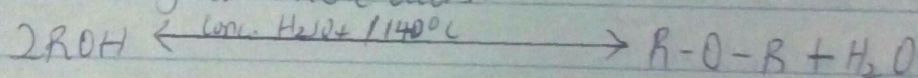 2ROH ← Conc. H₂SO₄ / 140°C → R-O-R + H₂O